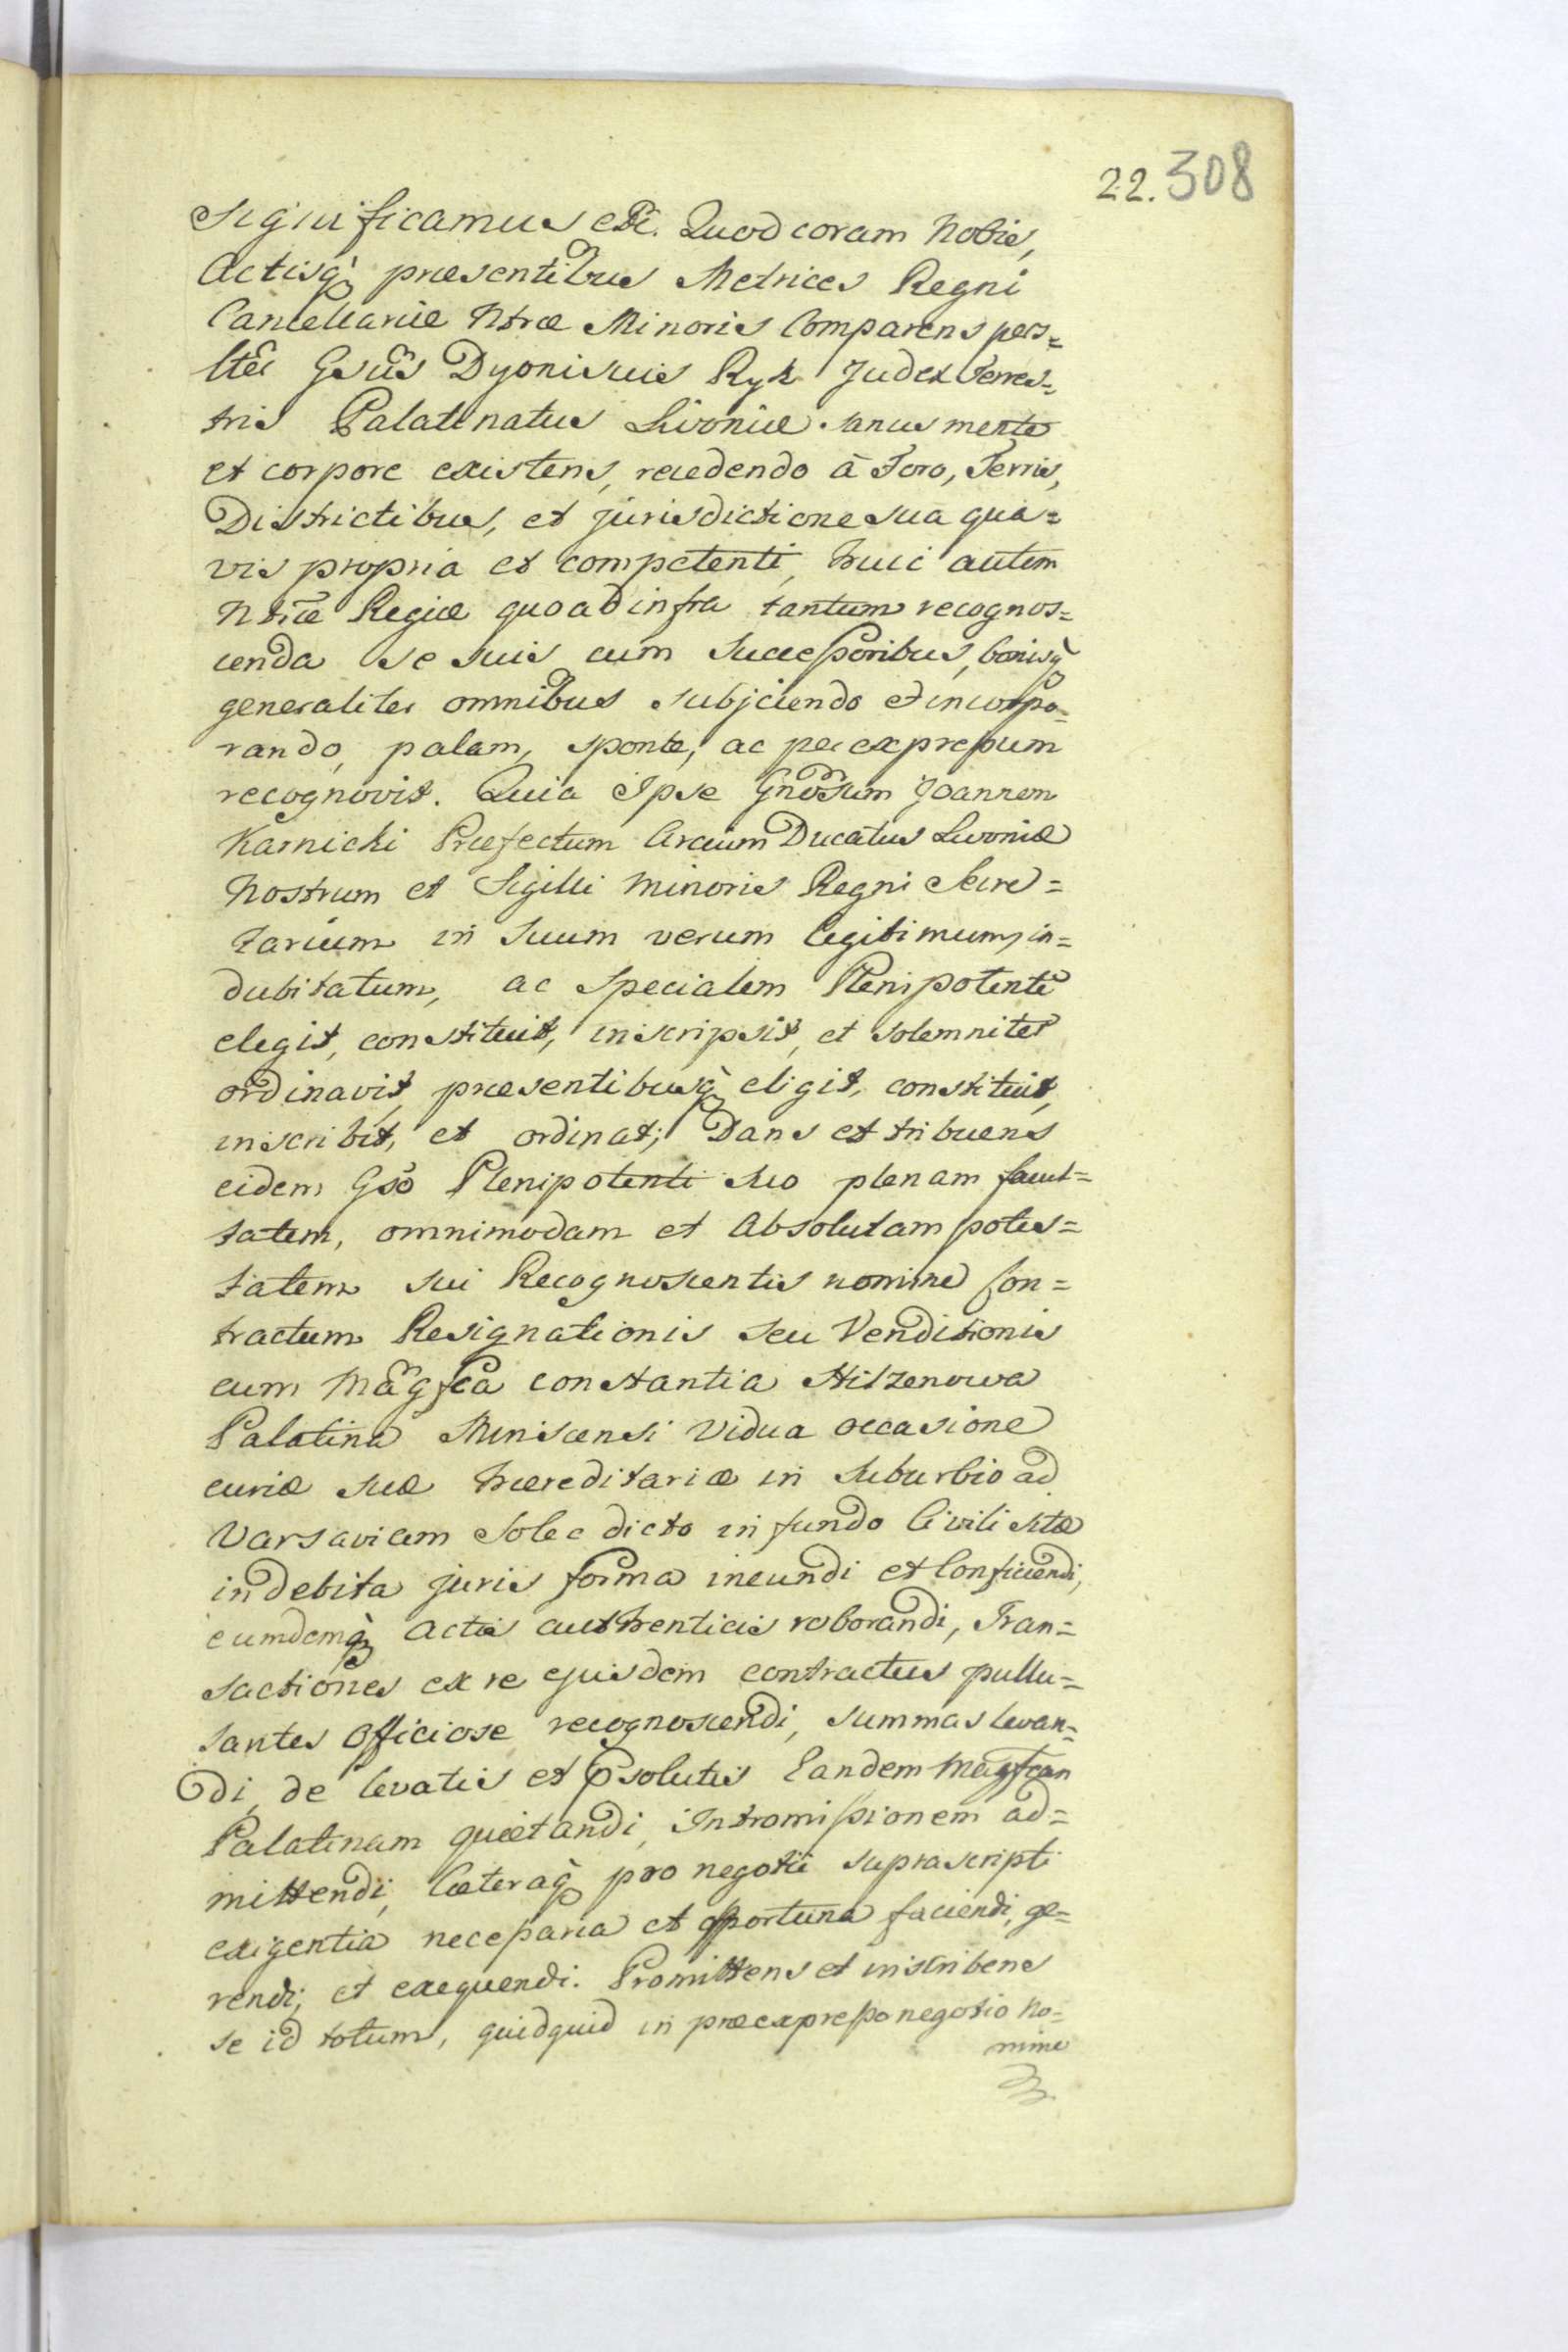 22. 308
Significamus etc. Quod coram Nobis,
Actisq̀ præsentibus Metrices Regni
Cancellariæ Ntræ Minoris Comparens pers=
lter Gsus Dyonisius Ryk Judex Terres=
tris Palatinatus Livoniæ sanus mente
et corpore existens, recedendo à Foro, Terris,
Districtibus, et jurisdictione sua qua=
vis propria et competenti, huic autem
Ntræ Regiæ quoad infra tantum recognos=
cenda se suis cum Successoribus, bonisq̀
generaliter omnibus subjiciendo et incorpo=
rando, palam, sponte, ac per expressum
recognovit. Quia Ipse Gnosum Joannem
Karnicki Præfectum Arcium Ducatus Livoniæ
Nostrum et Sigilli Minoris Regni Secre=
tarium in Suum verum legitimum, in=
dubitatum, ac Specialem Plenipotentē
elegit, constituit, inscripsit, et solemniter
ordinavit, præsentibusq̀ eligit, constituit,
inscribit, et ordinat; Dans et tribuens
eidem Gso Plenipotenti suo plenam facul=
tatem, omnimodam et Absolutam potes=
tatem sui Recognoscentis nomine Con=
tractum Resignationis seu Venditionis
cum Magfca Constantia Hilzenowa
Palatina Minscensi Vidua occasione
curiæ suæ hæreditariæ in Suburbio ad
Varsaviam Solec dicto in fundo Civili sitæ
in debita juris forma ineundi et Conficiendi,
eumdemq̀ Actis authenticis roborandi, Tran=
sactiones ex re ejusdem contractus pullu=
lantes Officiose recognoscendi, summas levan=
di, de levatis et psolutis Eandem Magfcan
Palatinam quietandi, Intromissionem ad=
mittendi, Cæteraq̀ pro negotii suprascripti
exigentia necessaria et opportuna faciendi, ge=
rendi, et exequendi. Promittens et inscribens
se id totum, quidquid in præexpresso negotio No=
mine